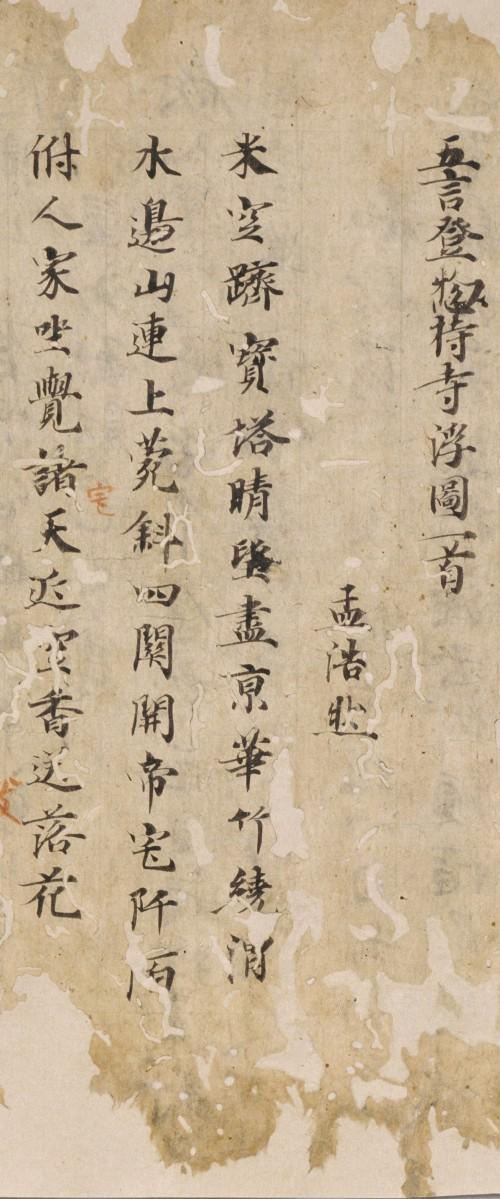 五言登惣持寺浮圖一首
孟浩然
米空躋寶塔晴望盡亰華竹繞渭
水邊山連上菀斜四關開帝宅阡陌
俯人家坐覺諸天近空香送落花
宅